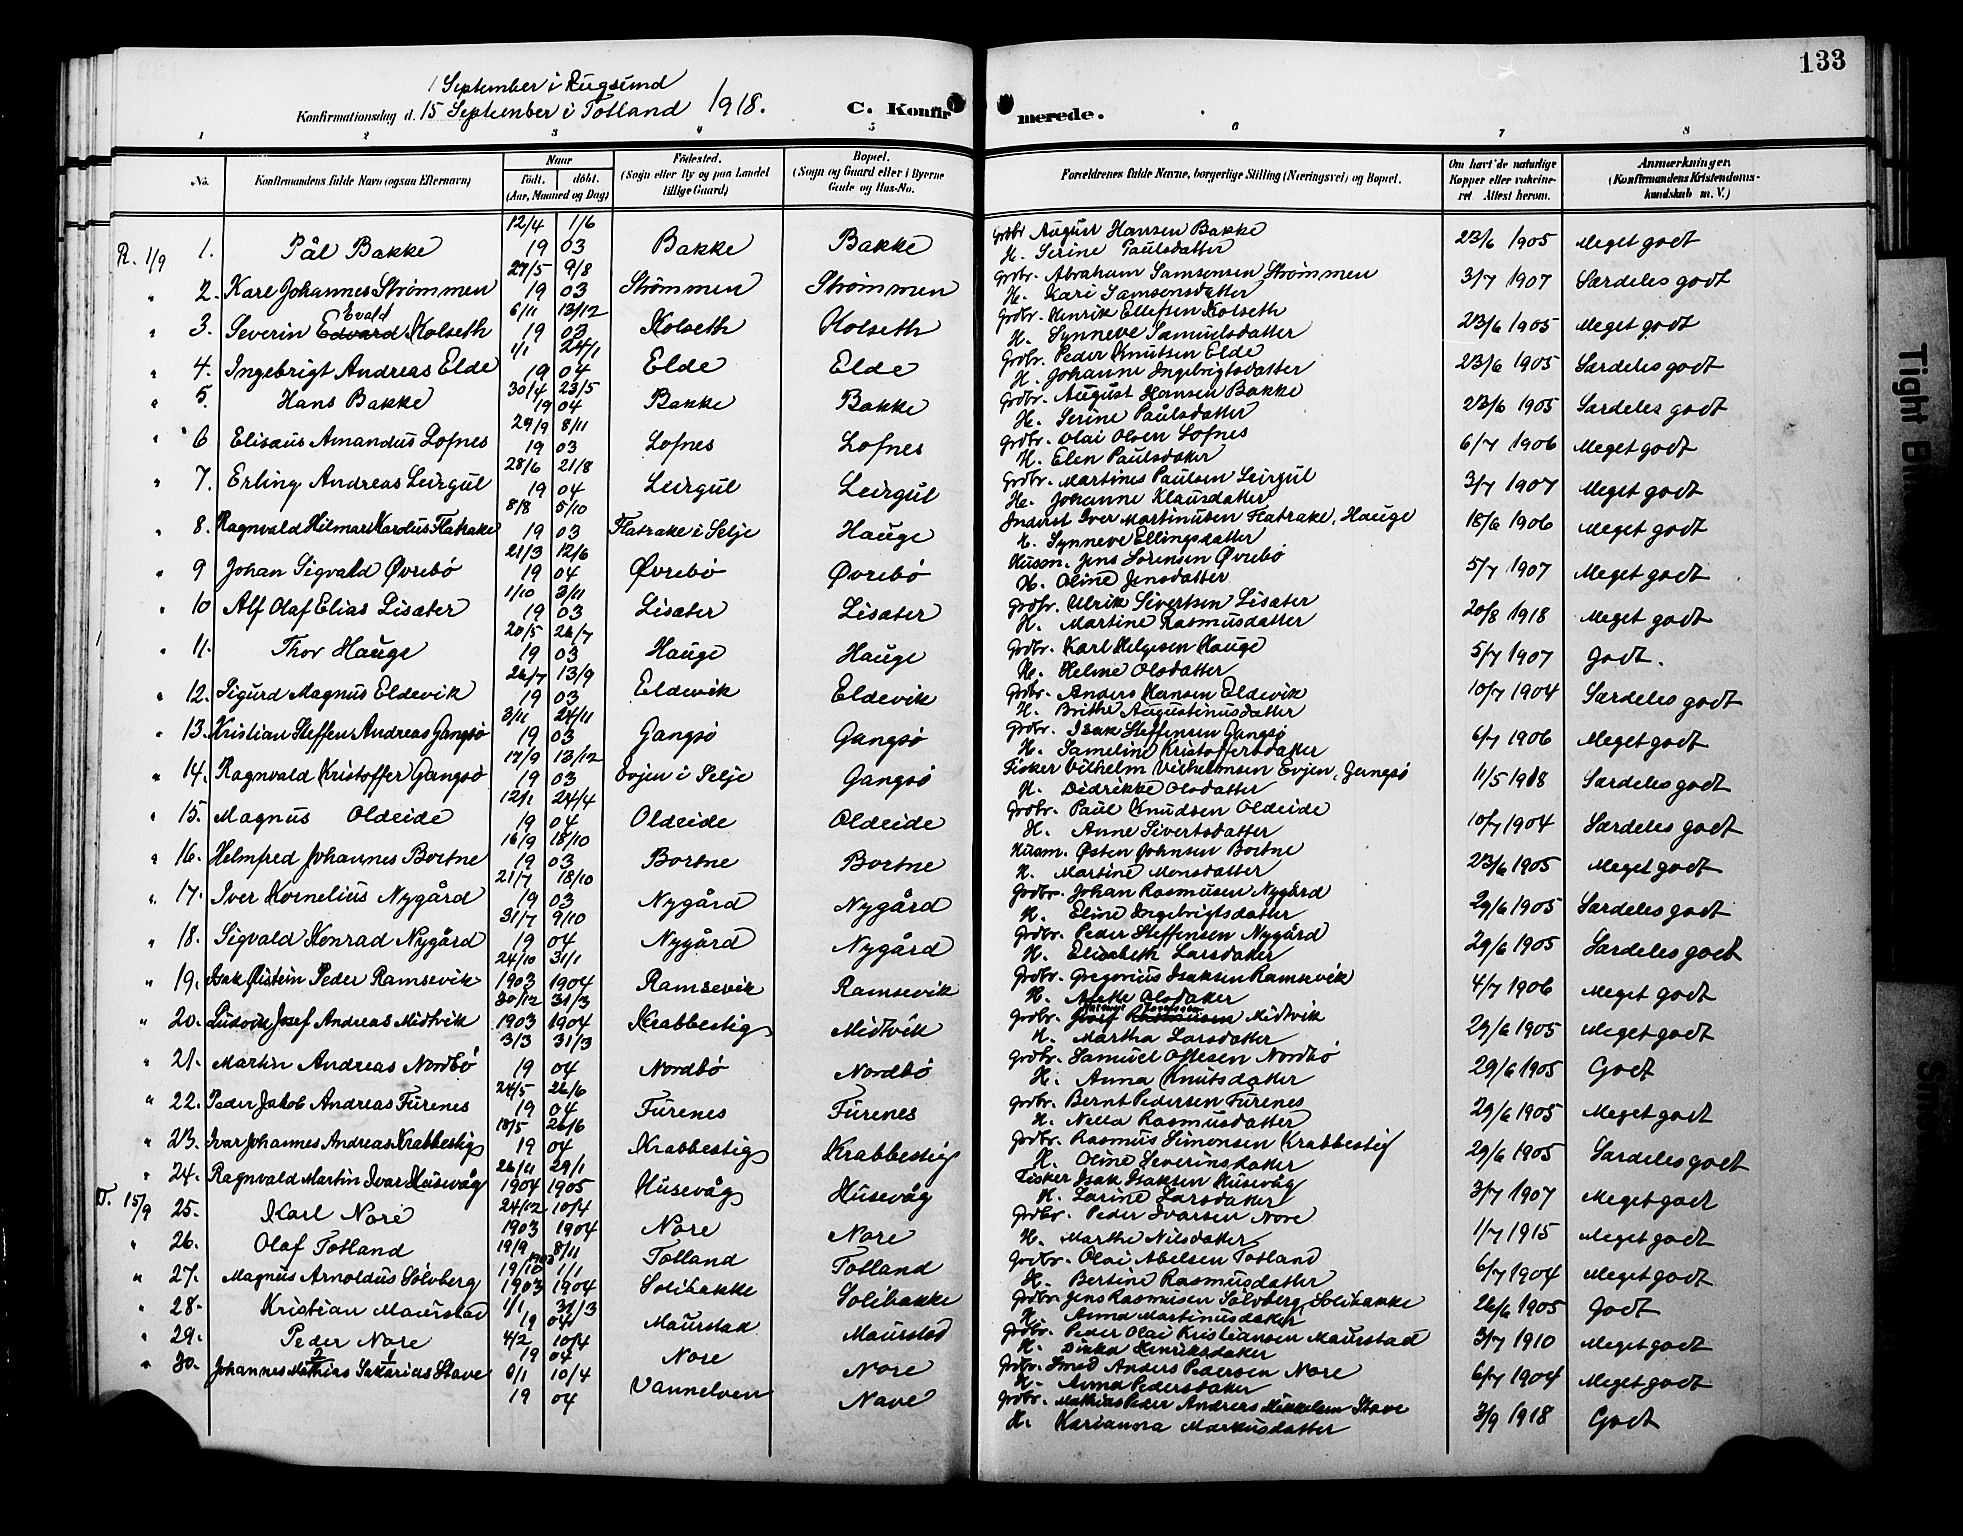 133
1 September i Rugsund
Konfirmationsdag d. 15 September i Totland 1918. C. Konfirmerede.
1 2 3 4 5 6 7 8
No. Konfirmandens fulde Navn (ogsaa Efternavn) Naar født. døbt. (Aar, Maaned og Dag) Fødested. (Sogn eller By og paa Landet tillige Gaard) Bopæl. (Sogn og Gaard eller i Byerne Gade og Hus-No. Forældrenes fulde Navne, borgerlige Stilling (Næringsvei) og Bopæl. Om havt de naturlige Kopper eller vakcineret Attest herom. Anmærkninger. (Konfirmandens Kristendomskundskab m. V.)
R. 1/9 1. Pål Bakke 12/4 1903 1/6 Bakke Bakke Grdbr August Hansen Bakke
H. Serine Paulsdatter 23/6 1905 Meget godt
" 2. Karl Johannes Strømmen 27/5 9/8 1903 Strømmen Strømmen Grdbr. Abraham Samsonsen Strømmen
H. Kari Samsonsdatter 3/7 1907 Særdeles godt
" 3. Severin Edvard Evald Kolseth 6/11 13/12 1903 Kolseth Kolseth Grdbr. Henrik Ellefsen Kolseth
H. Synneve Samuelsdatter 23/6 1905 Meget godt
" 4. Ingebrigt Andreas Elde 1/1 24/1 1904 Elde Elde Grdbr. Peder Knutsen Elde
H. Johanne Ingebrigtsdatter 23/6 1905 Særdeles godt
" 5. Hans Bakke 30/4 23/5 1904 Bakke Bakke Grdbr. August Hansen Bakke
H. Serine Pålsdatter 23/6 1905 Særdeles godt
" 6 Elisæus Amandus Lofnes 29/9 8/11 1903 Lofnes Lofnes Grdbr. Olai Olsen Lofnes
H. Elen Paulsdatter 6/7 1906 Meget godt
" 7. Erling Andreas Leirgul 28/6 21/8 1904 Leirgul Leirgul Grdbr. Martines Paulsen Leirgul
H. Johanne Klausdatter 3/7 1907 Meget godt
" 8. Ragnvald Hilmar Kardus Flatrake 8/8 5/10 1903 Flatrake i Selje Hauge Inderst Iver Martinusen Flatrake, Hauge
H. Synneve Ellingsdatter 18/6 1906 Meget godt
" 9 Johan Sigvald Øvrebø 21/3 12/6 1904 Øvrebø Øvrebø Husm. Jens Sørensen Øvrebø
H. Oline Jensdatter 5/7 1907 Meget godt
" 10 Alf Olaf Elias Lisæter 1/10 3/11 1903 Lisæter Lisæter Grdbr. Ulrik Sivertsen Lisæter
H. Martine Rasmusdatter 20/8 1918 Meget godt
" 11. Thor Hauge 20/5 26/7 1903 Hauge Hauge Grdbr. Karl Helgesen Hauge
H. Helene Olsdatter 5/7 1907 Godt.
" 12. Sigurd Magnus Eldevik 26/7 13/9 1903 Eldevik Eldevik Grdbr. Anders Hansen Eldevik
H. Brithe Augustinusdatter 10/7 1904 Særdeles godt
" 13. Kristian Steffen Andreas Gangsø 3/11 24/11 1903 Gangsø Gangsø Grdbr. Isak Steffensen Gangsø
H. Sameline Kristoffersdatter 6/7 1906 Meget godt
" 14. Ragnvald Kristoffer Gangsø 17/9 13/12 1903 Evjen i Selje Gangsø Fisker Vilhelm Vilhelmsen Evjen, Gangsø
H. Didrikke Olsdatter 11/5 1918 Særdeles godt
" 15. Magnus Oldeide 12/1 24/4 1904 Oldeide Oldeide Grdbr. Paul Knudsen Oldeide
H. Anne Sivertsdatter 10/7 1904 Særdeles godt
" 16. Helmfred Johannes Bortne 16/9 18/10 1903 Bortne Bortne Husm. Østen Johnsen Bortne
H. Martine Monsdatter 23/6 1905 Meget godt
" 17. Iver Kornelius Nygård 21/7 18/10 1903 Nygård Nygård Grdbr. Johan Rasmusen Nygård
H. Eline Ingebrigtsdatter 29/6 1905 Særdeles godt
" 18. Sigvald Konrad Nygård 31/7 9/10 1904 Nygård Nygård Grdbr. Peder Steffensen Nygård
H. Elisabeth Larsdatter 29/6 1905 Særdeles godt
" 19. Isak Øistein Peder Ramsevik 24/10 31/1 1903 1904 Ramsevik Ramsevik Grdbr. Gregorius Isaksen Ramsevik
H. Olsdatter 4/7 1906 Meget godt
" 20. Ludvik Josef Andreas Midtvik 30/12 31/3 1903 1904 Krabbestig Midtvik Grdbr. Josef Rasmusen Midtvik
H. Martha Larsdatter 29/6 1905 Meget godt
" 21. Martin Andreas Nordbø 3/3 31/3 1904 Nordbø Nordbø Grdbr. Samuel Ottesen Nordbø
H. Anna Knutsdatter 29/6 1905 Godt
" 22. Peder Jakob Andreas Furenes 24/5 26/6 1904 Furenes Furenes Grdbr. Bernt Pedersen Furenes
H. Nella Rasmusdatter 29/6 1905 Meget godt
" 23. Ivar Johannes Andreas Krabbestig 18/5 26/6 1904 Krabbestig Krabbestig Grdbr. Rasmus Simonsen Krabbestig
H. Oline Severinsdatter 29/6 1905 Særdeles godt
" 24. Ragnvald Martin Ivar Husevåg 26/11 29/1 1904 1905 Husevåg Husevåg Fisker Isak Isaksen Husevåg
H. Larine Larsdatter 3/7 1907 Meget godt
T. 15/9 25. Karl Nore 24/12 10/4 1903 1904 Nore Nore Grdbr. Peder Ivarsen Nore
H. Marthe Nilsdatter 1/7 1915 Meget godt
" 26. Olaf Totland 19/9 8/11 1903 Totland Totland Grdbr. Olai Abelsen Totland
H. Bertine Rasmusdatter 6/7 1904 Meget godt
" 27. Magnus Arnoldus Sølvberg 19/10 1/1 1903 1904 Solibakke Solibakke Grdbr. Jens Rasmusen Sølvberg, Solibakke
H. Anna Martinusdatter 26/6 1905 Godt
" 28. Kristian Maurstad 1/1 31/3 1904 Maurstad Maurstad Grdbr. Peder Olai Kristiansen Maurstad
H. Dirka Henriksdatter 3/7 1910 Meget godt
" 29. Peder Nore 4/2 10/4 1904 Nore Nore Grdbr. Smed Anders Pedersen Nore
H. Anna Pedersdatter 6/7 1904 Meget godt
" 30. Johannes Mathias Sakarias Stave 2 1 6/1 10/4 1904 Vannelven Nave Grdbr. Mathias Peder Andreas Mikkelsen Stave
H. Karianna Markusdatter 3/9 1918 Godt
Tight Bin